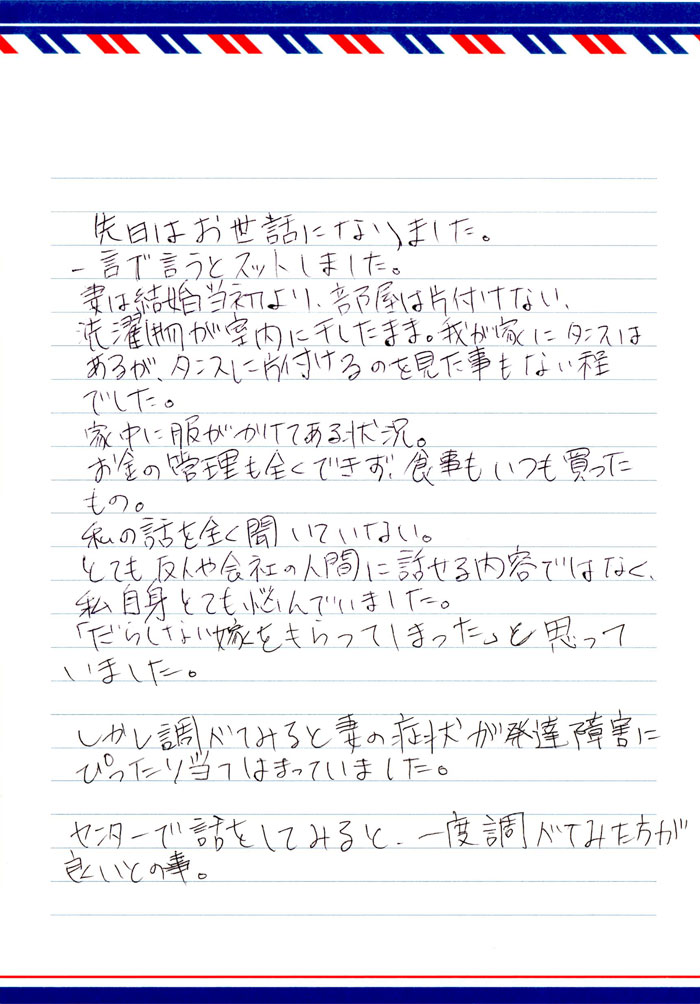 先日はお世話になりました。
一言で言うとスットしました。
妻は結婚当初より、部屋は片付けない、
洗濯物が室内に干したまま。我が家にタンスは
あるが、タンスに片付けるのを見た事もない程
でした。
家中に服がかけてある状況。
お金の管理も全くできず、食事もいつも買った
もの。
私の話を全く聞いていない。
とても友人や会社の人間に話せる内容ではなく、
私自身とても悩んでいました。
「だらしない嫁をもらってしまった」と思って
いました。
しかし調べてみると妻の症状が発達障害に
ぴったり当てはまっていました。
センターで話をしてみると、一度調べてみた方が
良いとの事。